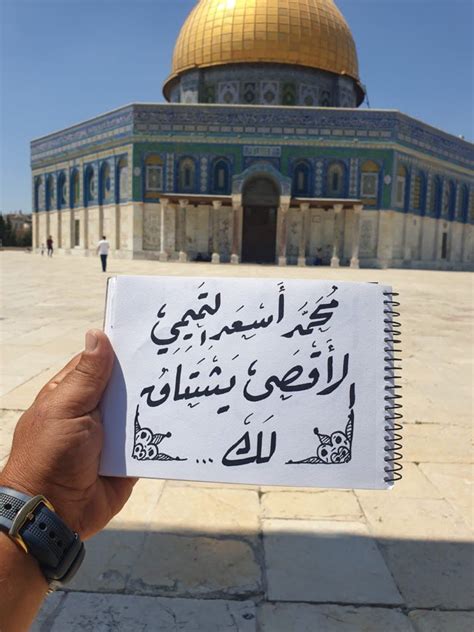 مُحَمَّد أَسعَد التَمِيمِي
الأَقصَى يَشتَاقُ
لَكَ ...